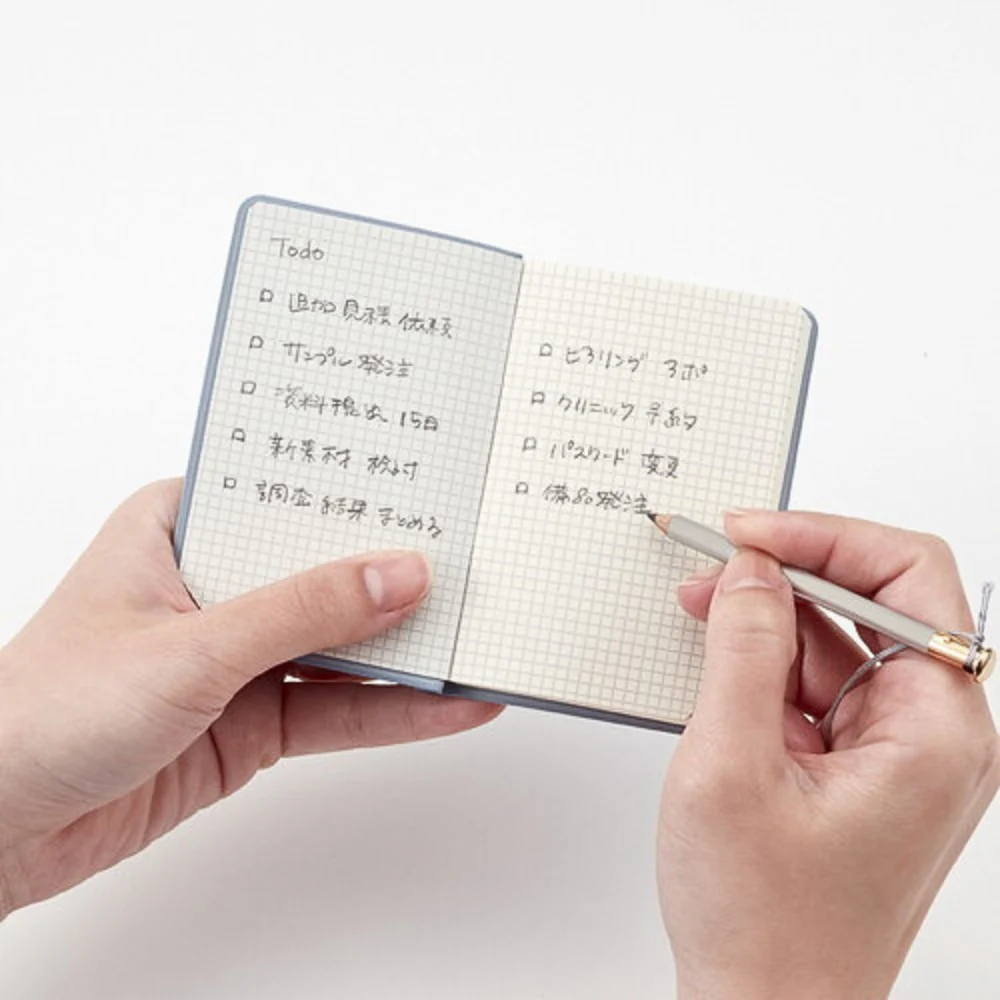 Todo
□ 追加 見積 依頼
□ サンプル 発注
□ 資料提出 15日
□ 新素材 検討
□ 調査 結果 まとめる
□ ヒアリング
□ クリニック 予約
□ パスワード 変更
□ 備品発注